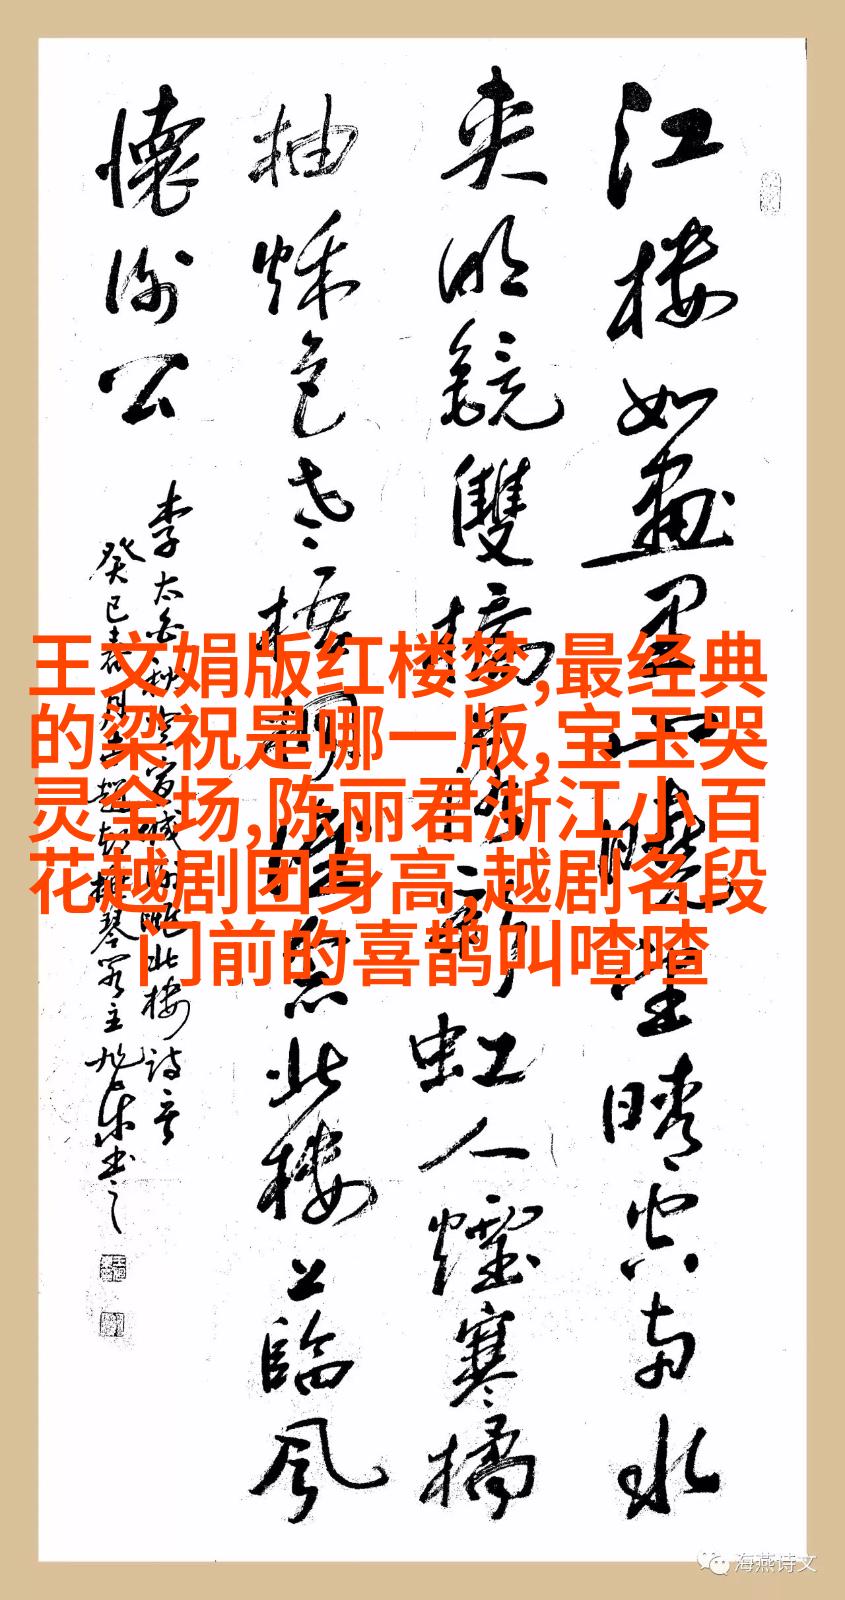 江楼如畫里山曉望晴空两水
夾明鏡雙橋落彩虹人煙寒橘
柚秋色老梧桐誰念北楼上臨風
懷謝公
李太白秋登宣城謝朓北楼詩意
癸巳春月
王文娟版红楼梦,最经典
的梁祝是哪一版,宝玉哭
灵全场,陈丽君浙江小百
花越剧团身高,越剧名段
门前的喜鹊叫喳喳
海燕诗文